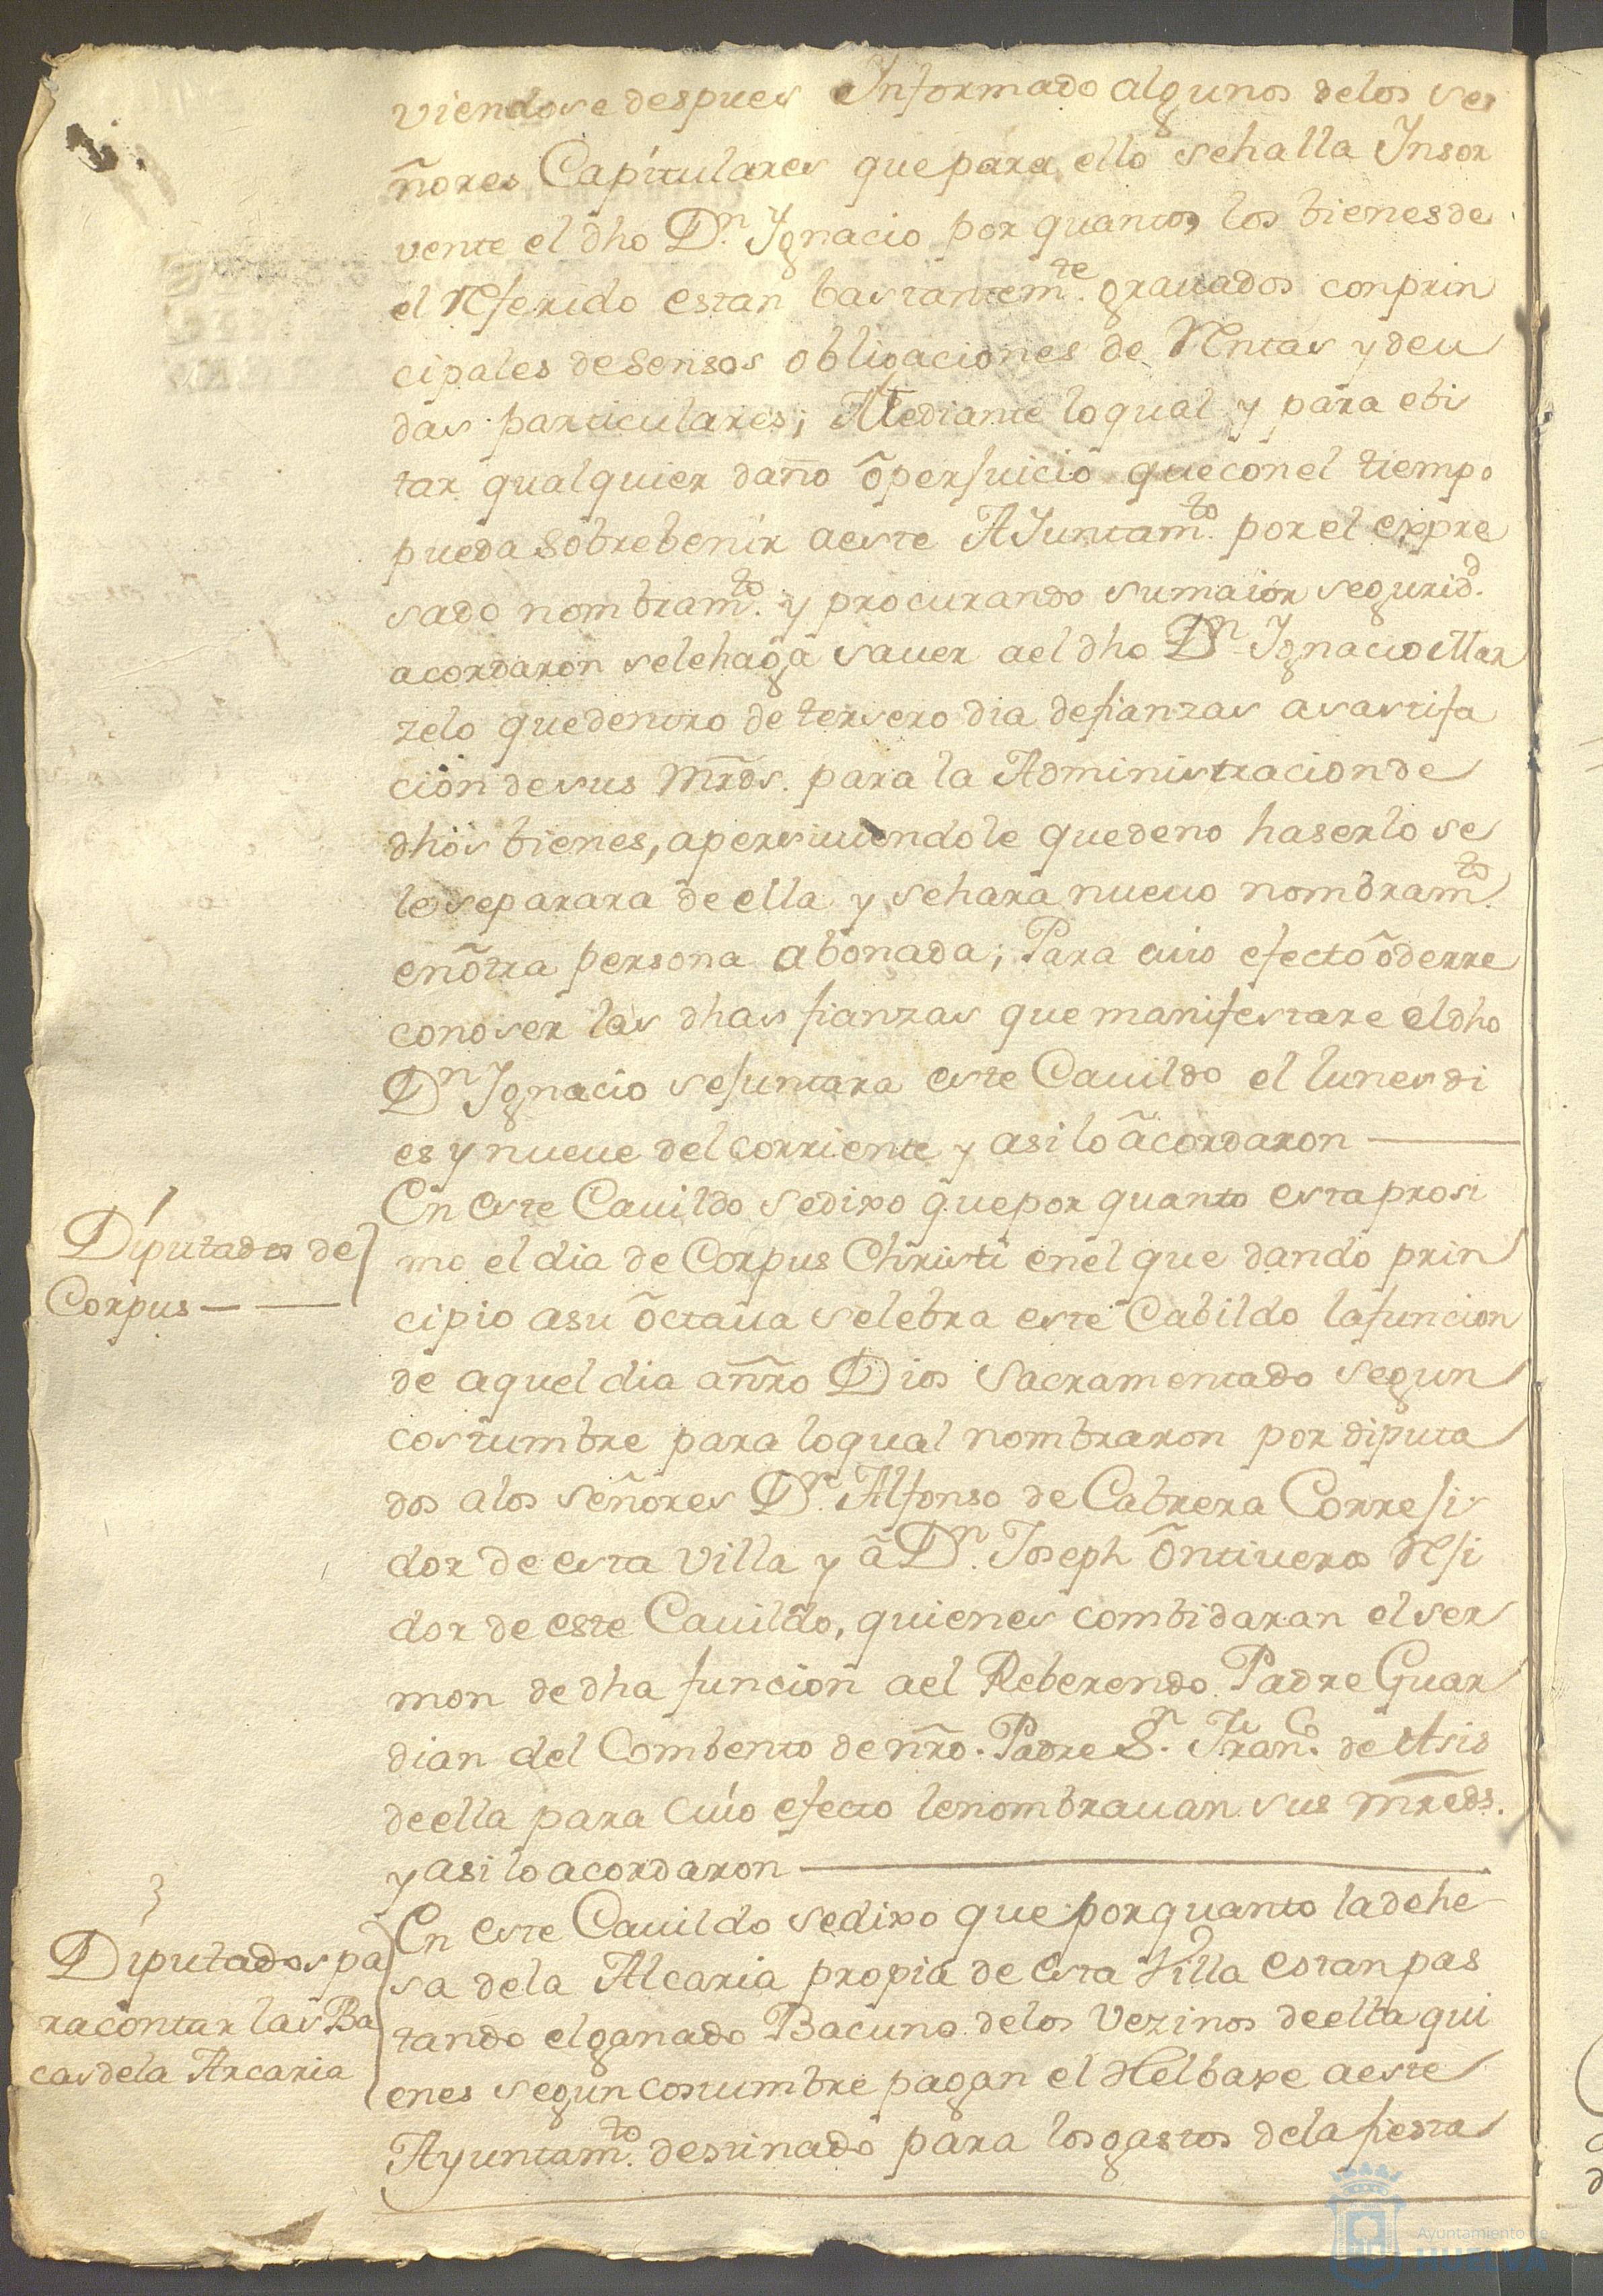 viendose despues Informado algunos delos se
ñores Capitulares que para ello sehalla Insol
vente el dho Dn. Ygnacio por quantos los bienes de
el Referido estan bastantemte. grauados con prin
cipales de Sensos obligaciones de Rentas y deu
das particulares; Mediante loqual y para ebi
tar qualquier daño õ perjuicio que con el tiempo
pueda Sobrebenir aeste AJuntamto. por el expre
sado nombramto. y procurando su maior seguridd.
acordaron sele haga sauer ael dho Dn. Ygnacio Mar
zelo que dentro de tersero dia de fianzas a sastifa
cion de sus Mrds. para la Administracion de
dhos bienes, apersiuiendole que de no haserlo se
le separara de ella y se hara nueuo nombramto.
en õtra persona abonada; Para cuio efecto õ de rre
conoser las dhas fianzas que manifestare el dho
Dn Ygnacio se juntara este Cauildo el lunes di
es y nueue del corriente y asi lo ãcordaron
Diputados de
Corpus
En este Cauildo sedixo que por quanto esta prosi
mo el dia de Corpus Christi en el que dando prin
cipio asu õctaua selebra este Cabildo la funcion
de aquel dia a ñro Dios Sacramentado segun
costumbre para loqual nombraron por diputa
dos a los señores Dn. Alfonso de Cabrera Correji
dor de esta Villa y ã Dn. Joseph õntiueros Reji
dor de este Cauildo, quienes combidaran el ser
mon de dha funcion ael Reberendo Padre Guar
dian del Combento de nro. Padre Sn. Franco. de Asis
de ella para cuio efecto le nombrauan sus mreds.
y asi lo acordaron
Diputados pa
ra contar las Ba
cas dela Arcaria
En este Cauildo sedixo que por quanto la dehe
sa dela Alcaria propia de esta Villa estan pas
tando el ganado Bacuno delos Vezinos de ella qui
enes segun costumbre pagan el Helbaxe aeste
Ayuntamto. destinado para los gastos de la fiesta
Ayuntamiento de
HUELVA